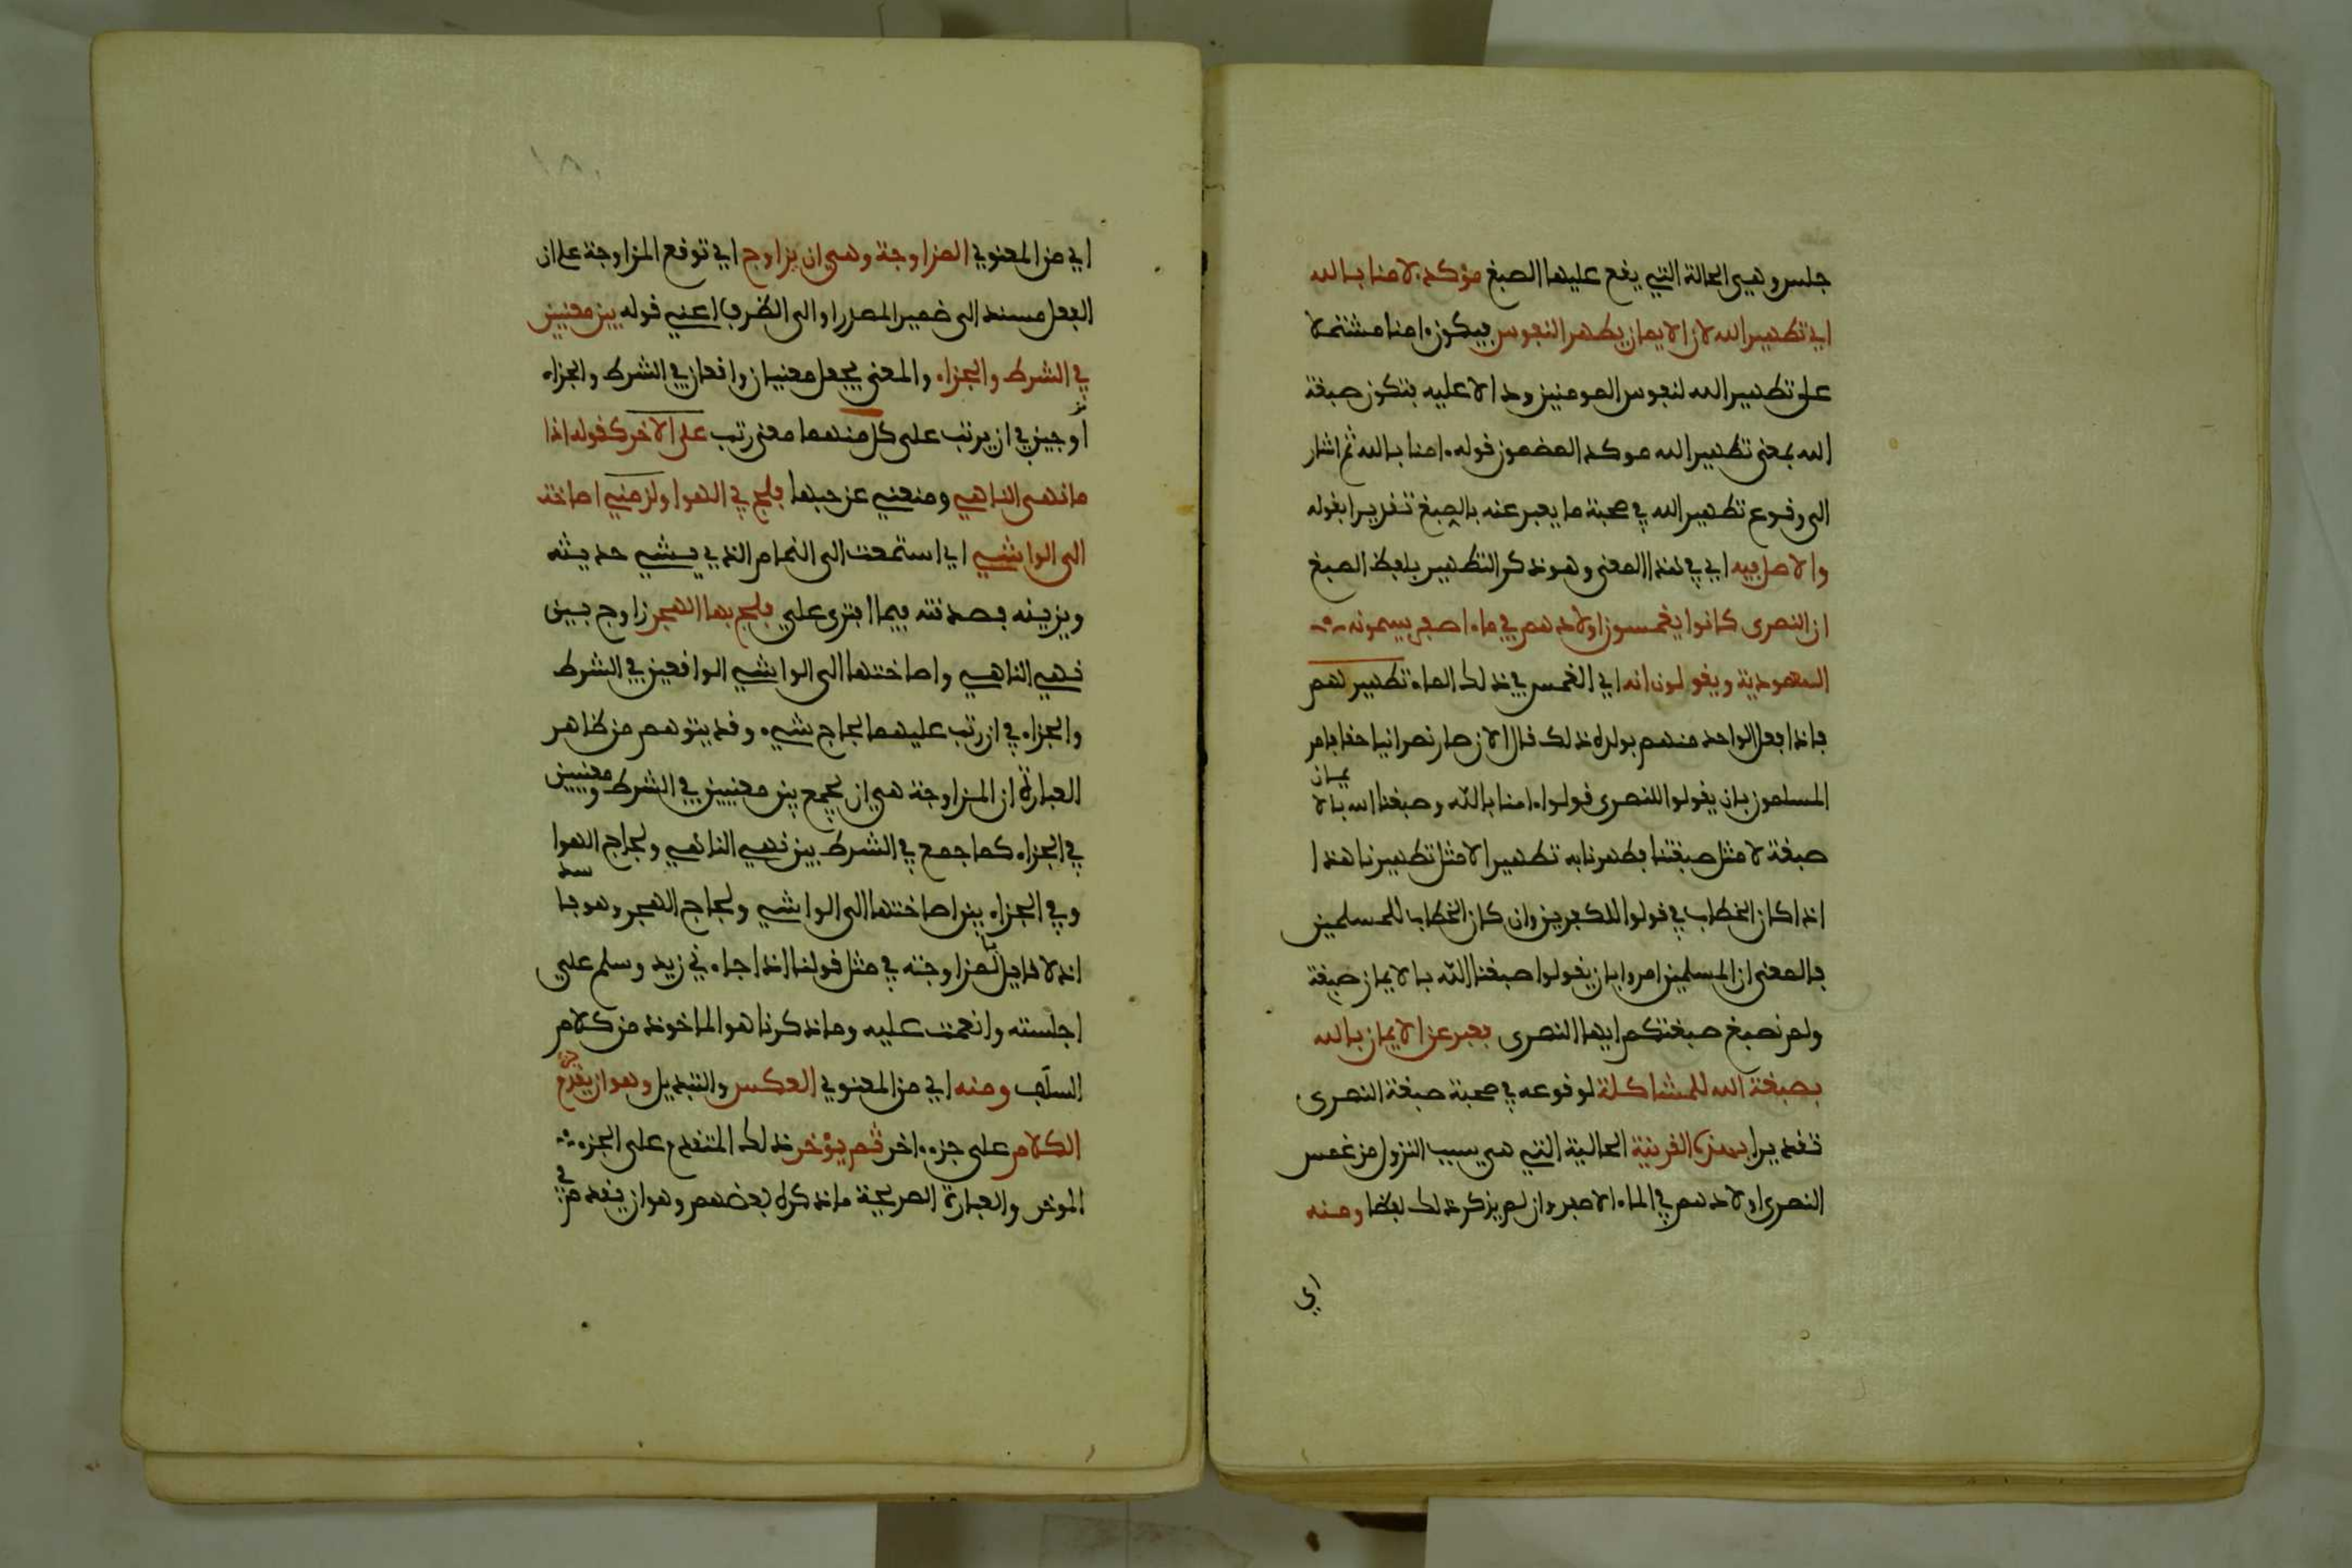 جلس وهي الحالة التي يقع عليها الصبغ مؤكد لامنا بالله
اي تطهير الله لان الايمان يطهر النفوس فيكون ءامنا مشتملا
على تطهير الله لنفوس المومنين ودالا عليه فتكون صبغة
الله بمعنى تطهير الله موكد المضمون قوله ءامنا بالله ثم اشار
الى وقوع تطهير الله في صحبة ما يعبر عنه بالصبغ تقديرا بقوله
والاصل فيه اي في هذا المعنى وهو ذكر التطهير بلفظ الصبغ
ان النصرى كانوا يغمسون اولادهم في ماء اصفر يسمونه
المعمودية ويقولون انه اي الغمس في ذلك الماء تطهير لهم
فاذا فعل الواحد منهم بولده ذلك قال الان صار نصرانيا حقا فامر
المسلمون بان يقولوا للنصرى قولوا ءامنا بالله وصبغنا الله بالايمان
صبغة لا مثل صبغتنا فطهرنا به تطهيرا لا مثل تطهيرنا هذا
اذا كان الخطاب في قولوا للكفرين وان كان الخطاب للمسلمين
فالمعنى ان المسلمين امروا بان يقولوا صبغنا الله بالايمان صبغة
ولم نصبغ صبغتكم ايها النصرى فعبر عن الايمان بالله
بصبغة الله للمشاكلة لوقوعه في صحبة صبغة النصرى
تقديرا بهذه القرينة الحالية التي هي سبب النزول من غمس
النصرى اولادهم في الماء الاصفر وان لم يذكر ذلك لفظا ومنه
اي
اي من المعنوي المزاوجة وهي ان يزاوج اي توقع المزاوجة على ان
الفعل مسند الى ضمير المصدر او الى الظرف اعني قوله بين معنيين
في الشرط والجزاء والمعنى يجعل معنيان واقعان في الشرط والجزاء
مزاوجين في ان يرتب على كل منهما معنى رتب على الاخر كقوله اذا
ما نهى الناهي ومنعني عن حبها فلج في الهوا ولزمني اصاخت
الى الواشي اي استمعت الى النمام الذي يشي حديثه
ويزينه فصدقته فيما افترى علي فلج بها الهجر زاوج بين
نهي الناهي واصاختها الى الواشي الواقعين في الشرط
والجزاء في ان رتب عليهما لجاج شيء وقد يتوهم من ظاهر
العبارة ان المزاوجة هي ان يجمع بين معنيين في الشرط ومعنيين
في الجزاء كما جمع في الشرط بين نهي الناهي ولجاج الهوا
وفي الجزاء بين اصاختها الى الواشي ولجاج الهجر وهو فاسد
اذ لا قايل بالمزاوجة في مثل قولنا اذا جاءني زيد وسلم علي
اجلسته وانعمت عليه وما ذكرنا هو الماخوذ من كلام
السلف ومنه اي من المعنوي العكس والتبديل وهو ان يقدم جزء
الكلام على جزء اخر ثم يؤخر ذلك المتقدم على الجزء
الموخر والعبارة الصريحة ما ذكره بعضهم وهو ان يقدم في